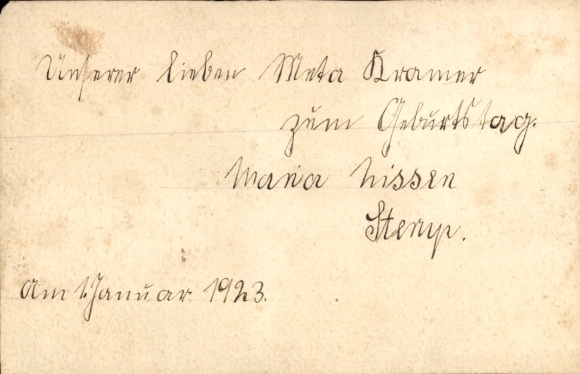 Unserer lieben Meta Kramer
zum Geburtstag.
Maria Nissen
Am 1. Januar 1923.